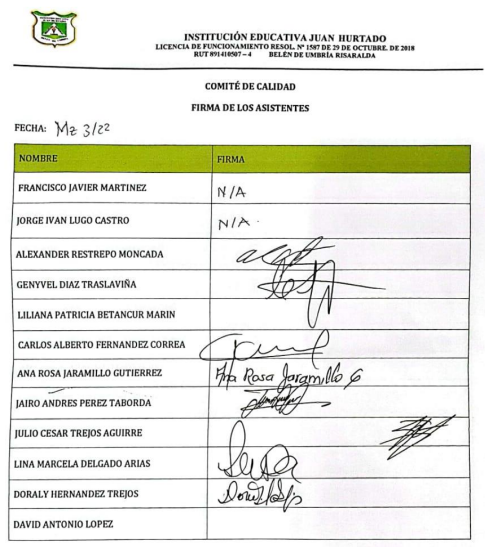 INSTITUCIÓN EDUCATIVA JUAN HURTADO
LICENCIA DE FUNCIONAMIENTO RESOL. Nº 1587 DE 29 DE OCTUBRE. DE 2018
RUT 891410507 – 4 BELÉN DE UMBRÍA RISARALDA
COMITÉ DE CALIDAD
FIRMA DE LOS ASISTENTES
FECHA: Mz 3/22
NOMBRE FIRMA
FRANCISCO JAVIER MARTINEZ N/A
JORGE IVAN LUGO CASTRO N/A.
ALEXANDER RESTREPO MONCADA
GENYVEL DIAZ TRASLAVIÑA
LILIANA PATRICIA BETANCUR MARIN
CARLOS ALBERTO FERNANDEZ CORREA
ANA ROSA JARAMILLO GUTIERREZ Ana Rosa Jaramillo G
JAIRO ANDRES PEREZ TABORDA
JULIO CESAR TREJOS AGUIRRE
LINA MARCELA DELGADO ARIAS
DORALY HERNANDEZ TREJOS
DAVID ANTONIO LOPEZ